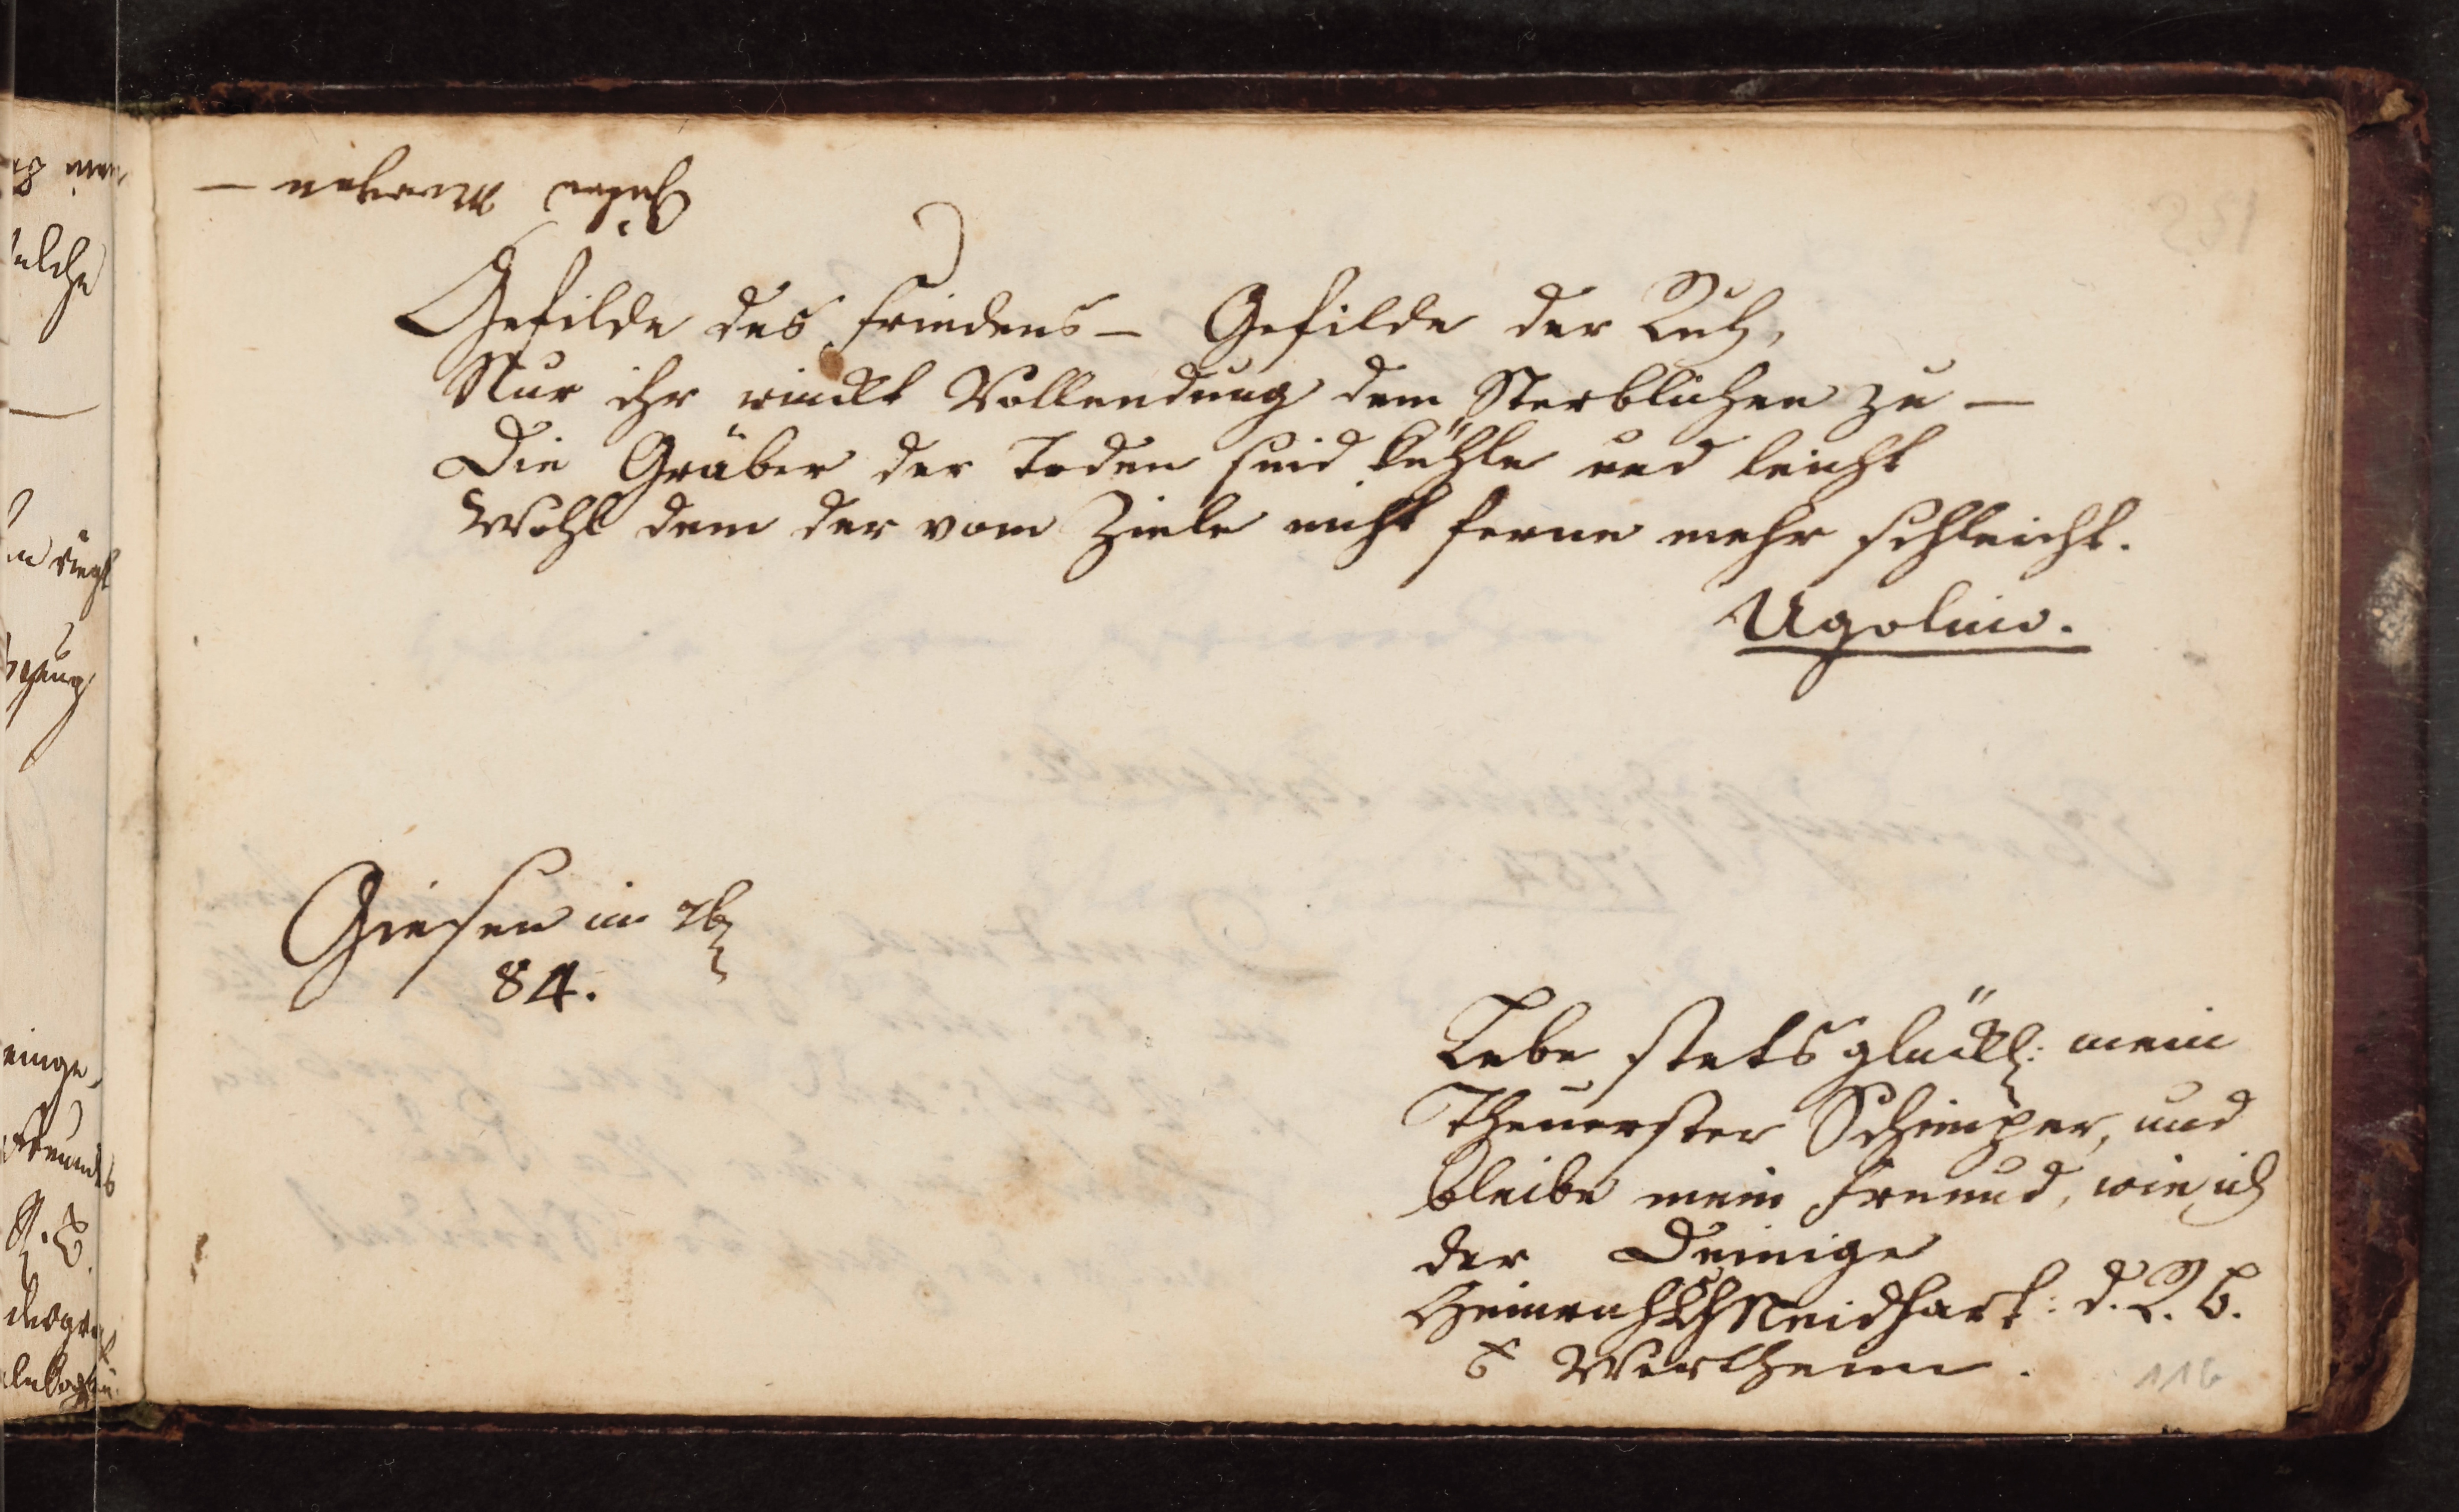 Guten Morgen —
Gefilde des Friedens — Gefilde der Ruh,
Nur ihr winckt Vollendung dem Sterblichen zu —
Die Gräber der Toden sind kühle und leicht
Wohl dem der vom Ziele nicht ferne mehr schleicht.
Ugolino.
Giesen im 7b
84.
Lebe stets glückl: mein
Theuerster Schimper, und
bleibe mein Freund, wie ich
der Deinige
Heinrich Neidhart: d. R. B.
Wertheim.
116